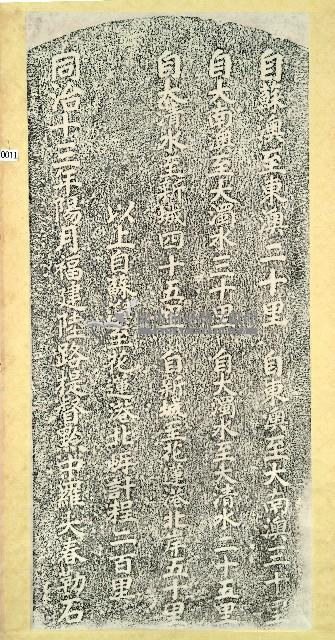 自蘇澳至東澳二十里 自東澳至大南澳三十里
自大南澳至大濁水三十里 自大濁水至大清水二十五里
自大清水至新城四十五里 自新城至花蓮港北岸五十里
以上自蘇澳至花蓮港北岸計程二百里
同治十三年陽月福建陸路提督黔中羅大春勒石
0011